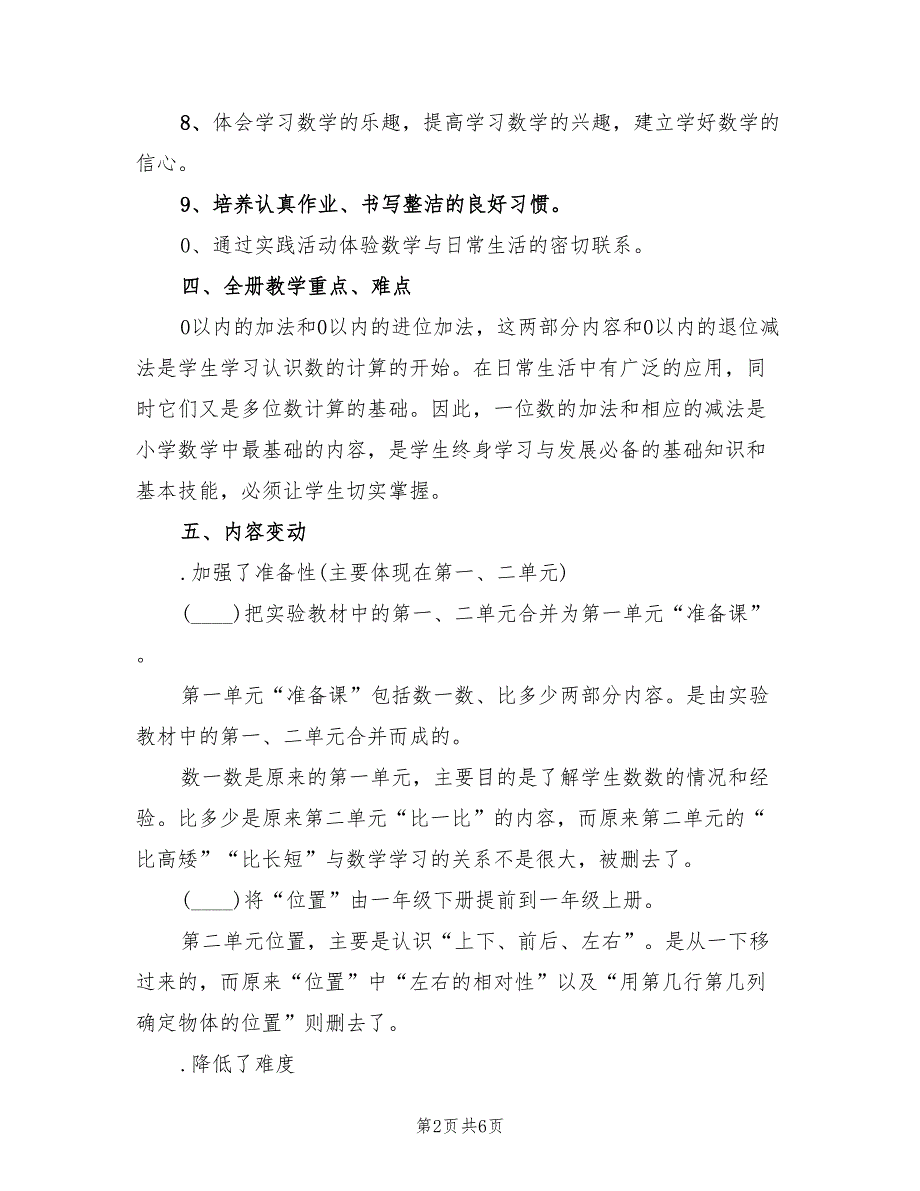 8、体会学习数学的乐趣，提高学习数学的兴趣，建立学好数学的
信心。
9、培养认真作业、书写整洁的良好习惯。
0、通过实践活动体验数学与日常生活的密切联系。
四、全册教学重点、难点
0以内的加法和0以内的进位加法，这两部分内容和0以内的退位减
法是学生学习认识数的计算的开始。在日常生活中有广泛的应用，同
时它们又是多位数计算的基础。因此，一位数的加法和相应的减法是
小学数学中最基础的内容，是学生终身学习与发展必备的基础知识和
基本技能，必须让学生切实掌握。
五、内容变动
.加强了准备性(主要体现在第一、二单元)
(____)把实验教材中的第一、二单元合并为第一单元“准备课”
。
第一单元“准备课”包括数一数、比多少两部分内容。是由实验
教材中的第一、二单元合并而成的。
数一数是原来的第一单元，主要目的是了解学生数数的情况和经
验。比多少是原来第二单元“比一比”的内容，而原来第二单元的“
比高矮”“比长短”与数学学习的关系不是很大，被删去了。
(____)将“位置”由一年级下册提前到一年级上册。
第二单元位置，主要是认识“上下、前后、左右”。是从一下移
过来的，而原来“位置”中“左右的相对性”以及“用第几行第几列
确定物体的位置”则删去了。
.降低了难度
第2页共6页